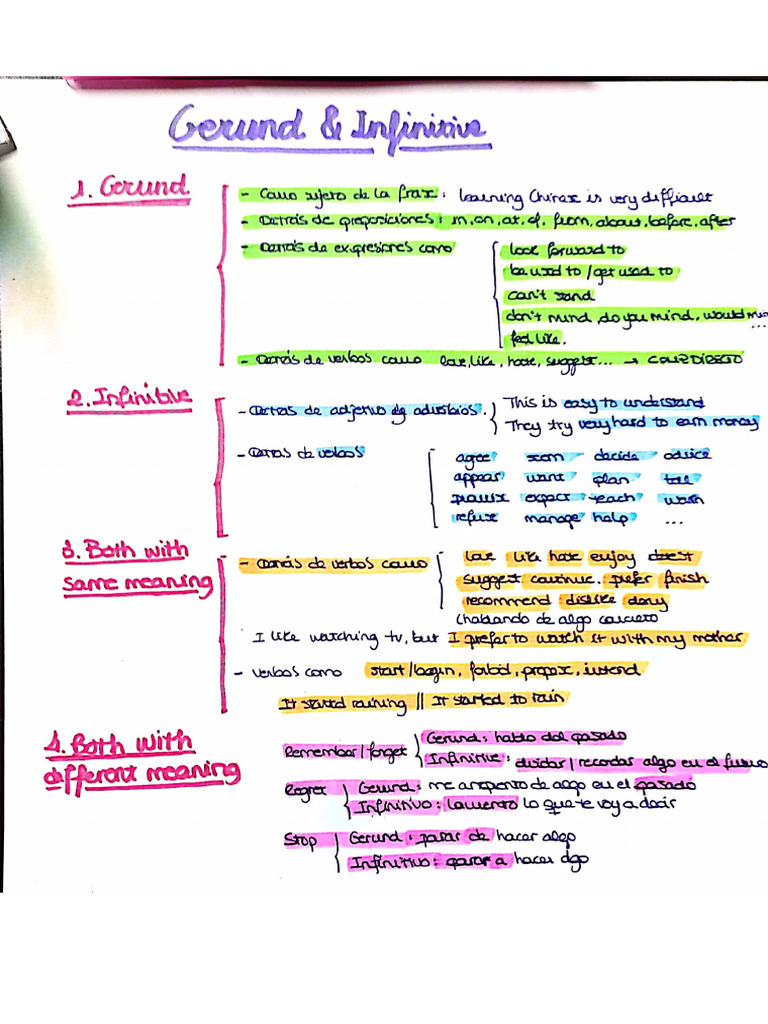 Gerund & Infinitive
1. Gerund
- Como sujeto de la frase: learning Chinese is very difficult
- Detrás de preposiciones: in, on, at, of, from, about, before, after
- Detrás de expresiones como
look forward to
be used to / get used to
can't stand
don't mind, do you mind, would min
...
feel like.
- Detrás de verbos como love, like, hate, suggest... →
2. Infinitive
- Detrás de adjetivo adverbios.
This is easy to understand
They try very hard to earn money
- Detrás de verbos
agree seem decide advice
appear want plan tell
promise expect teach wash
refuse manage help ...
3. Both with
same meaning
- Detrás de verbos como
love like hate enjoy
suggest continue. prefer finish
recommend dislike deny
(hablando de algo concreto
I like watching tv, but I prefer to watch it with my mother
- verbos como start/begin, forbid, propose, intend
It started raining || It started to rain
4. Both with
different meaning
Remember/forget
Gerund: hablo del pasado
Infinitive: olvidar/recordar algo en el futuro
Regret
Gerund: me arrepiento de algo en el pasado
Infinitivo: lamento lo que te voy a decir
Stop
Gerund: parar de hacer algo
Infinitivo: parar a hacer algo